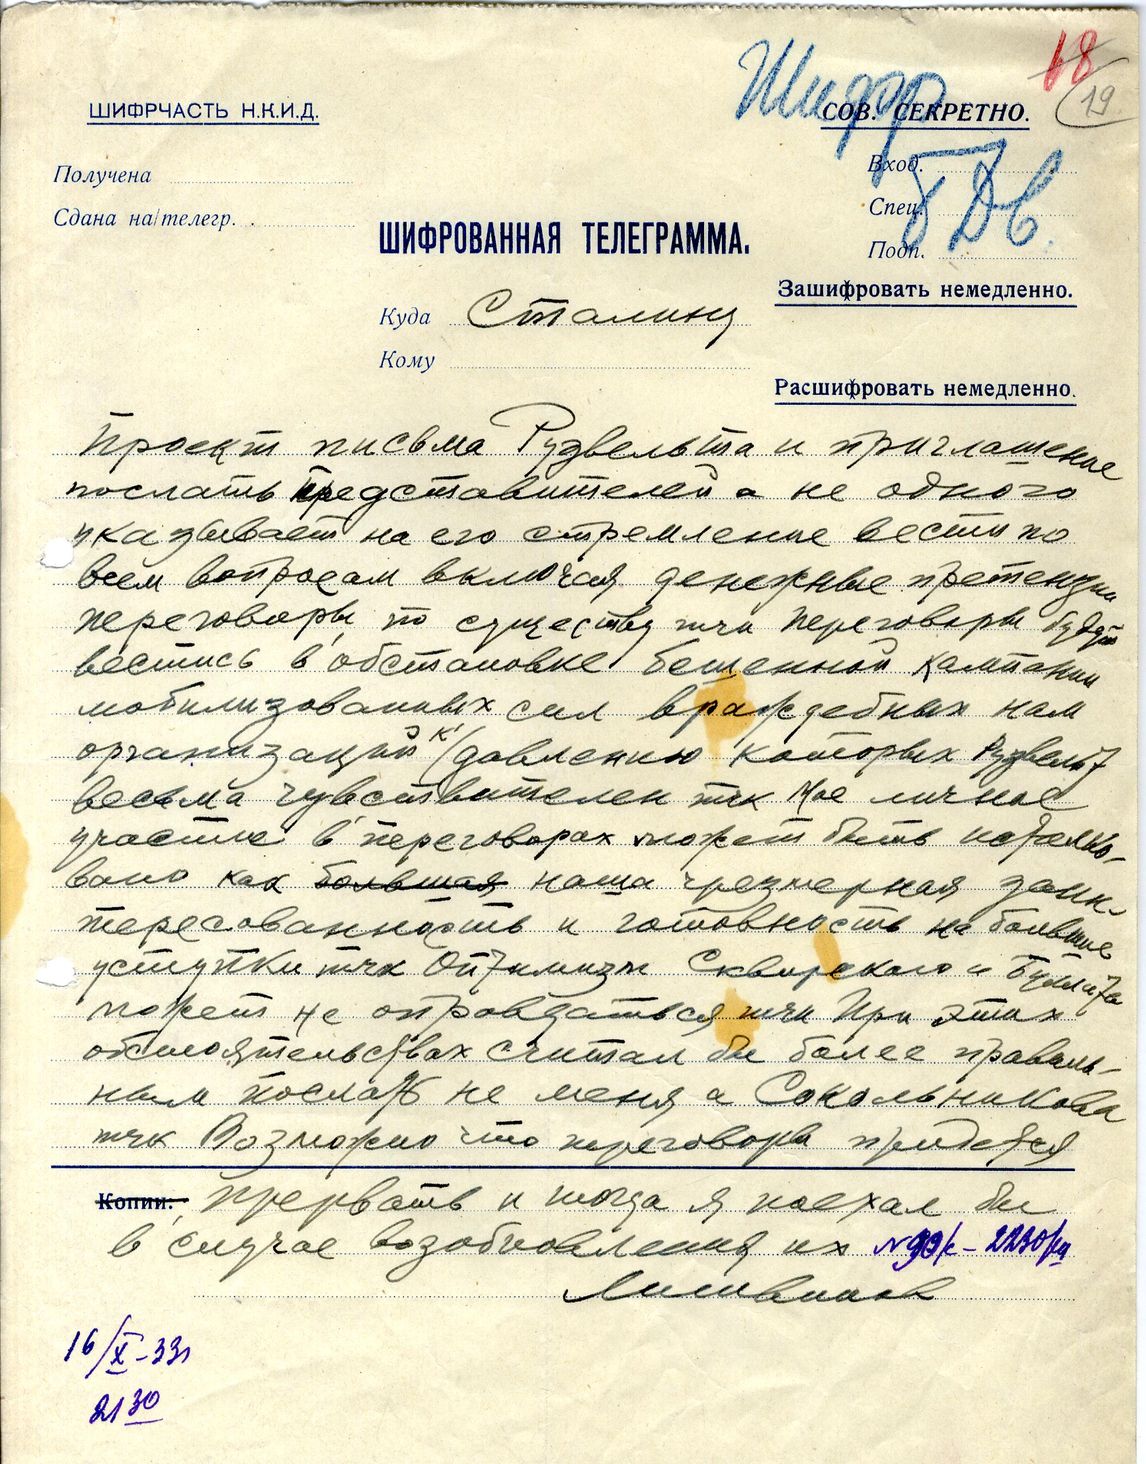 Шифр
18
19
ШИФРЧАСТЬ Н.К.И.Д.
СОВ. СЕКРЕТНО.
Получена
Вход.
Сдана на телегр.
Спец.
БДС
ШИФРОВАННАЯ ТЕЛЕГРАММА.
Подп.
Зашифровать немедленно.
Куда Сталину
Кому
Расшифровать немедленно.
Проект письма Рузвельта и приглашение
послать представителей а не одного
указывает на его стремление вести по
всем вопросам включая денежные претензии
переговоры по существу тчк Переговоры будут
вестись в обстановке бешенной кампании
мобилизованных сил враждебных нам
организаций к давлению которых Рузвельт
весьма чувствителен тчк Мое личное
участие в переговорах может быть истолко-
вано как большая наша чрезмерная заин-
тересованность и готовность на большие
уступки тчк Оптимизм Сквирского и Буллита
может не оправдаться тчк При этих
обстоятельствах считал бы более правиль-
ным послать не меня а Сокольникова
тчк Возможно что переговоры придется
Копии: прервать и тогда я поехал бы
в случае возобновления их
Литвинов
16/X-33г
21 30